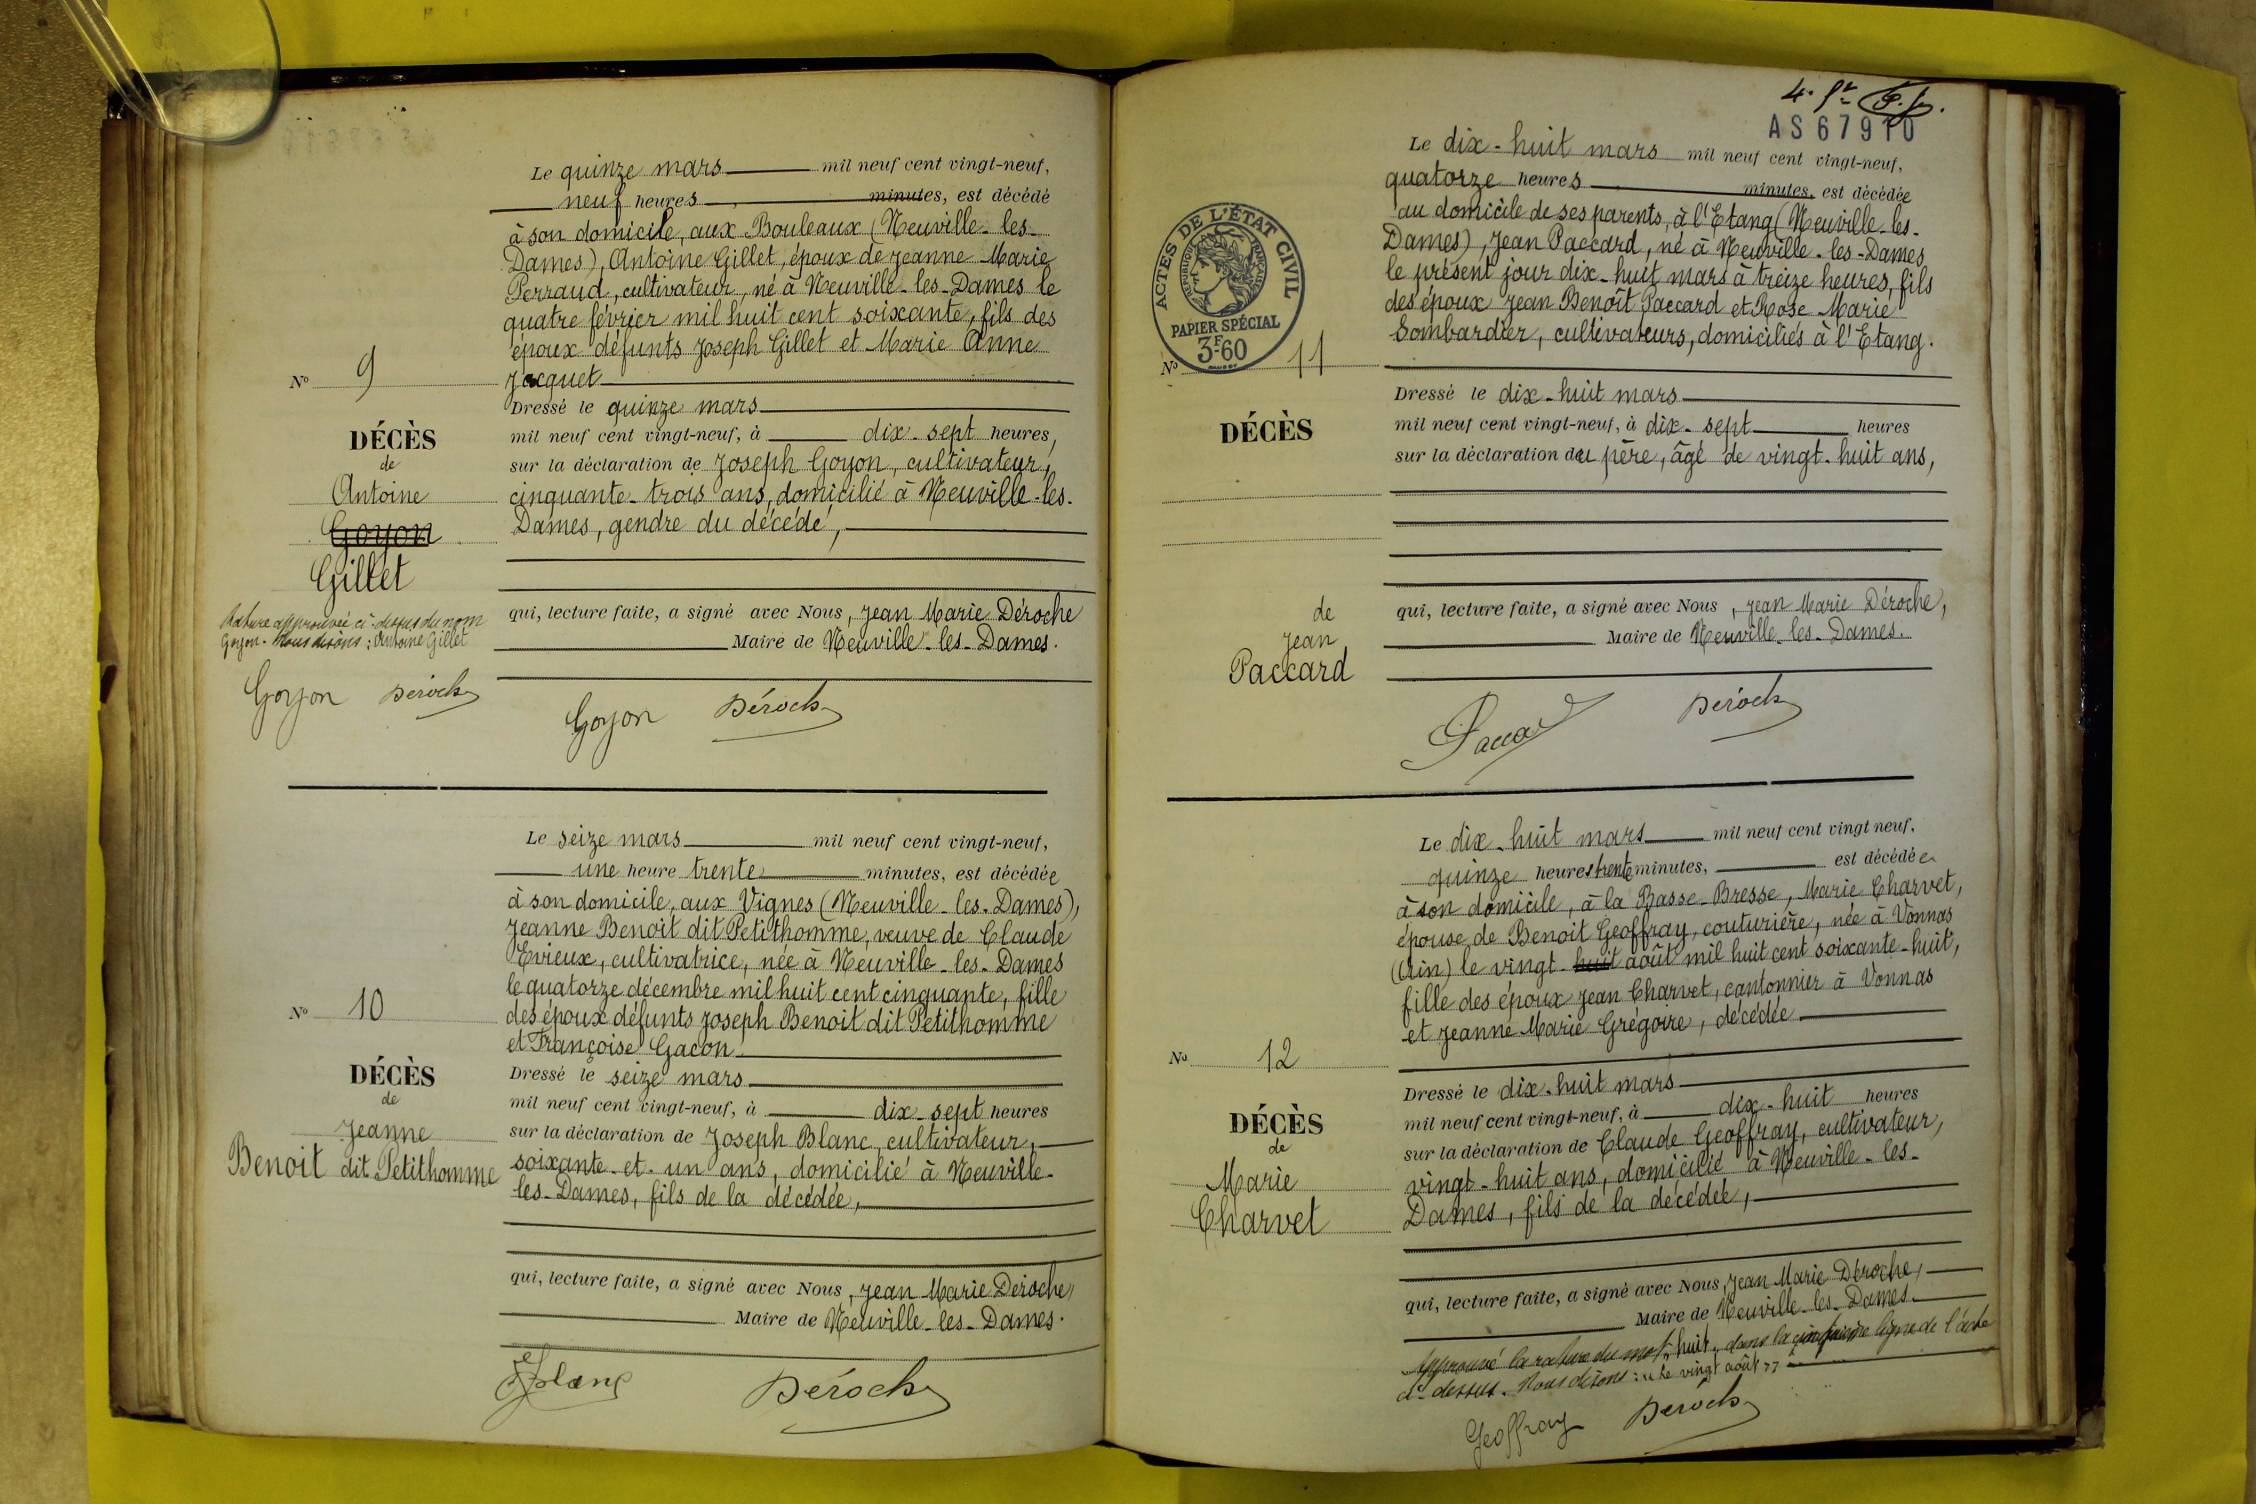 Le quinze mars mil neuf cent vingt-neuf,
neuf heures minutes, est décédé
à son domicile, aux Bouleaux (Neuville-les-
Dames), Antoine Gillet, époux de Jeanne Marie
Perraud, cultivateur, né à Neuville-les-Dames le
quatre février mil huit cent soixante, fils des
époux défunts Joseph Gillet et Marie Anne
Jacquet
Nº 9
DÉCÈS
de
Antoine
Goyon
Gillet
Rature approuvée ci-dessus du nom
Goyon. Nous disons : Antoine Gillet
Goyon Déroche
Dressé le quinze mars
mil neuf cent vingt-neuf, à dix-sept heures,
sur la déclaration de Joseph Goyon, cultivateur,
cinquante-trois ans, domicilié à Neuville-les-
Dames, gendre du décédé,
qui, lecture faite, a signé avec Nous, Jean Marie Déroche
Maire de Neuville-les-Dames.
Goyon Déroche
Le seize mars mil neuf cent vingt-neuf,
une heure trente minutes, est décédée
à son domicile, aux Vignes (Neuville-les-Dames),
Jeanne Benoit dit Petithomme, veuve de Claude
Evieux, cultivatrice, née à Neuville-les-Dames
le quatorze décembre mil huit cent cinquante, fille
des époux défunts Joseph Benoit dit Petithomme
et Françoise Gacon
Nº 10
DÉCÈS
de
Jeanne
Benoit dit Petithomme
Dressé le seize mars
mil neuf cent vingt-neuf, à dix-sept heures
sur la déclaration de Joseph Blanc, cultivateur,
soixante-et-un ans, domicilié à Neuville-
les-Dames, fils de la décédée,
qui, lecture faite, a signé avec Nous, Jean Marie Déroche,
Maire de Neuville-les-Dames.
Blanc Déroche
AS 67910
Le dix-huit mars mil neuf cent vingt-neuf,
quatorze heures minutes, est décédée
au domicile de ses parents, à l'Etang (Neuville-les-
Dames), Jean Paccard, né à Neuville-les-Dames
le présent jour dix-huit mars à treize heures, fils
des époux Jean Benoît Paccard et Rose Marie
Sombardier, cultivateurs, domiciliés à l'Etang.
ACTES DE L'ÉTAT CIVIL
RÉPUBLIQUE FRANÇAISE
PAPIER SPÉCIAL
3F60
Nº 11
DÉCÈS
de
Jean
Paccard
Dressé le dix-huit mars
mil neuf cent vingt-neuf, à dix-sept heures
sur la déclaration du père, âgé de vingt-huit ans,
qui, lecture faite, a signé avec Nous, Jean Marie Déroche,
Maire de Neuville-les-Dames.
Paccard Déroche
Le dix-huit mars mil neuf cent vingt neuf,
quinze heures trente minutes, est décédée
à son domicile, à la Basse-Bresse, Marie Charvet,
épouse de Benoit Geoffray, couturière, née à Vonnas
(Ain) le vingt-huit août mil huit cent soixante-huit,
fille des époux Jean Charvet, cantonnier à Vonnas
et Jeanne Marie Grégoire, décédée
Nº 12
DÉCÈS
de
Marie
Charvet
Dressé le dix-huit mars
mil neuf cent vingt-neuf, à dix-huit heures
sur la déclaration de Claude Geoffray, cultivateur,
vingt-huit ans, domicilié à Neuville-les-
Dames, fils de la décédée,
qui, lecture faite, a signé avec Nous, Jean Marie Déroche,
Maire de Neuville-les-Dames.
Approuvé la rature du mot "huit" dans la cinquième ligne de l'acte
ci-dessus. Nous disons : "Le vingt août"
Geoffray Déroche